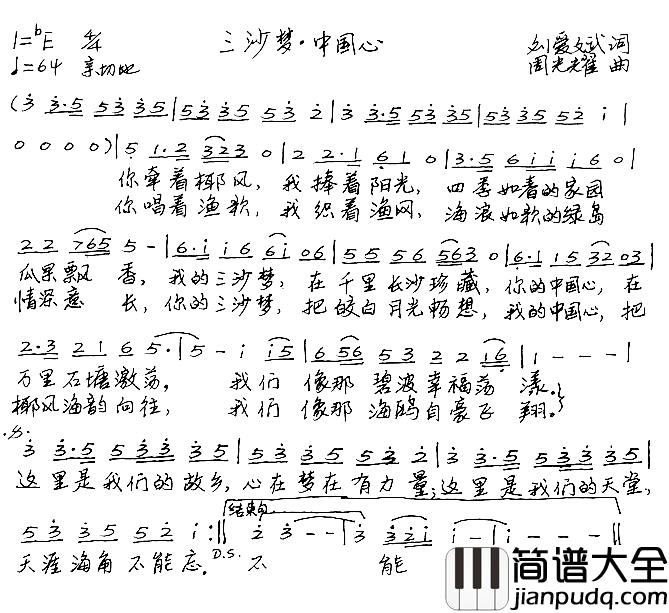 1=♭E 4/4 三沙梦·中国心 刘爱斌词
♩=64 亲切地 周光耀曲
(3 3·5 53 35|53 35 53 2|3 3·5 53 35|53 35 52 i|
0 0 0 0)|5 1·2 323 0|2 2·1 61 0|3·5 6i i i6 0|
你牵着椰风，我捧着阳光，四季如春的家园
你唱着渔歌，我织着渔网，海浪如歌的绿岛
22 765 5 -|6·i i6 6i 06|55 56 563 0|6·1 15 32 03|
瓜果飘香，我的三沙梦，在千里长沙珍藏，你的中国心，在
情深意长，你的三沙梦，把皎白月光畅想，我的中国心，把
2·3 21 6 5·|5 - i i5|6 56 53 2 2 16|1 - - -|
万里石塘激荡。我们像那碧波幸福荡漾。}
椰风海韵向往，我们像那海鸥自豪飞翔。}
3 3·5 533 35|53 35 53 2|3 3·5 533 35|
这里是我们的故乡，心在梦在有力量；这里是我们的天堂，
结束句
53 35 52 i :‖ 2 3 - -|3 32i i -|i - - -‖
天涯海角不能忘。D.S. 不能
简谱大全
jianpudq.com